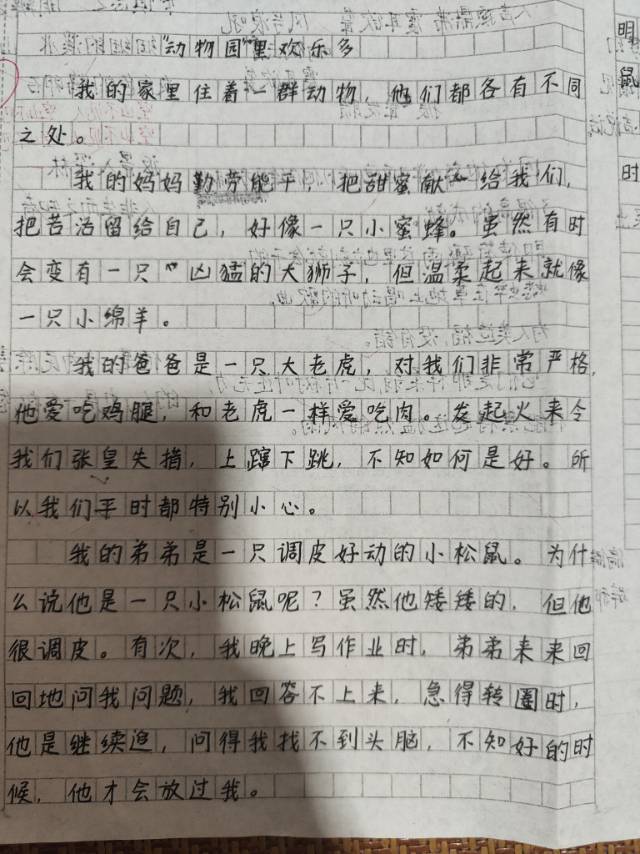 “动物园”里欢乐多
我的家里住着一群动物，他们都各有不同
之处。
我的妈妈勤劳能干，把甜蜜献给我们，
把苦活留给自己，好像一只小蜜蜂。虽然有时
会变有一只凶猛的大狮子，但温柔起来就像
一只小绵羊。
我的爸爸是一只大老虎，对我们非常严格，
他爱吃鸡腿，和老虎一样爱吃肉。发起火来令
我们张皇失措，上蹿下跳，不知如何是好。所
以我们平时都特别小心。
我的弟弟是一只调皮好动的小松鼠。为什
么说他是一只小松鼠呢？虽然他矮矮的，但他
很调皮。有次，我晚上写作业时，弟弟来来回
回地问我问题，我回答不上来，急得转圈时，
他是继续追，问得我找不到头脑，不知好的时
候，他才会放过我。
明
鼠
时